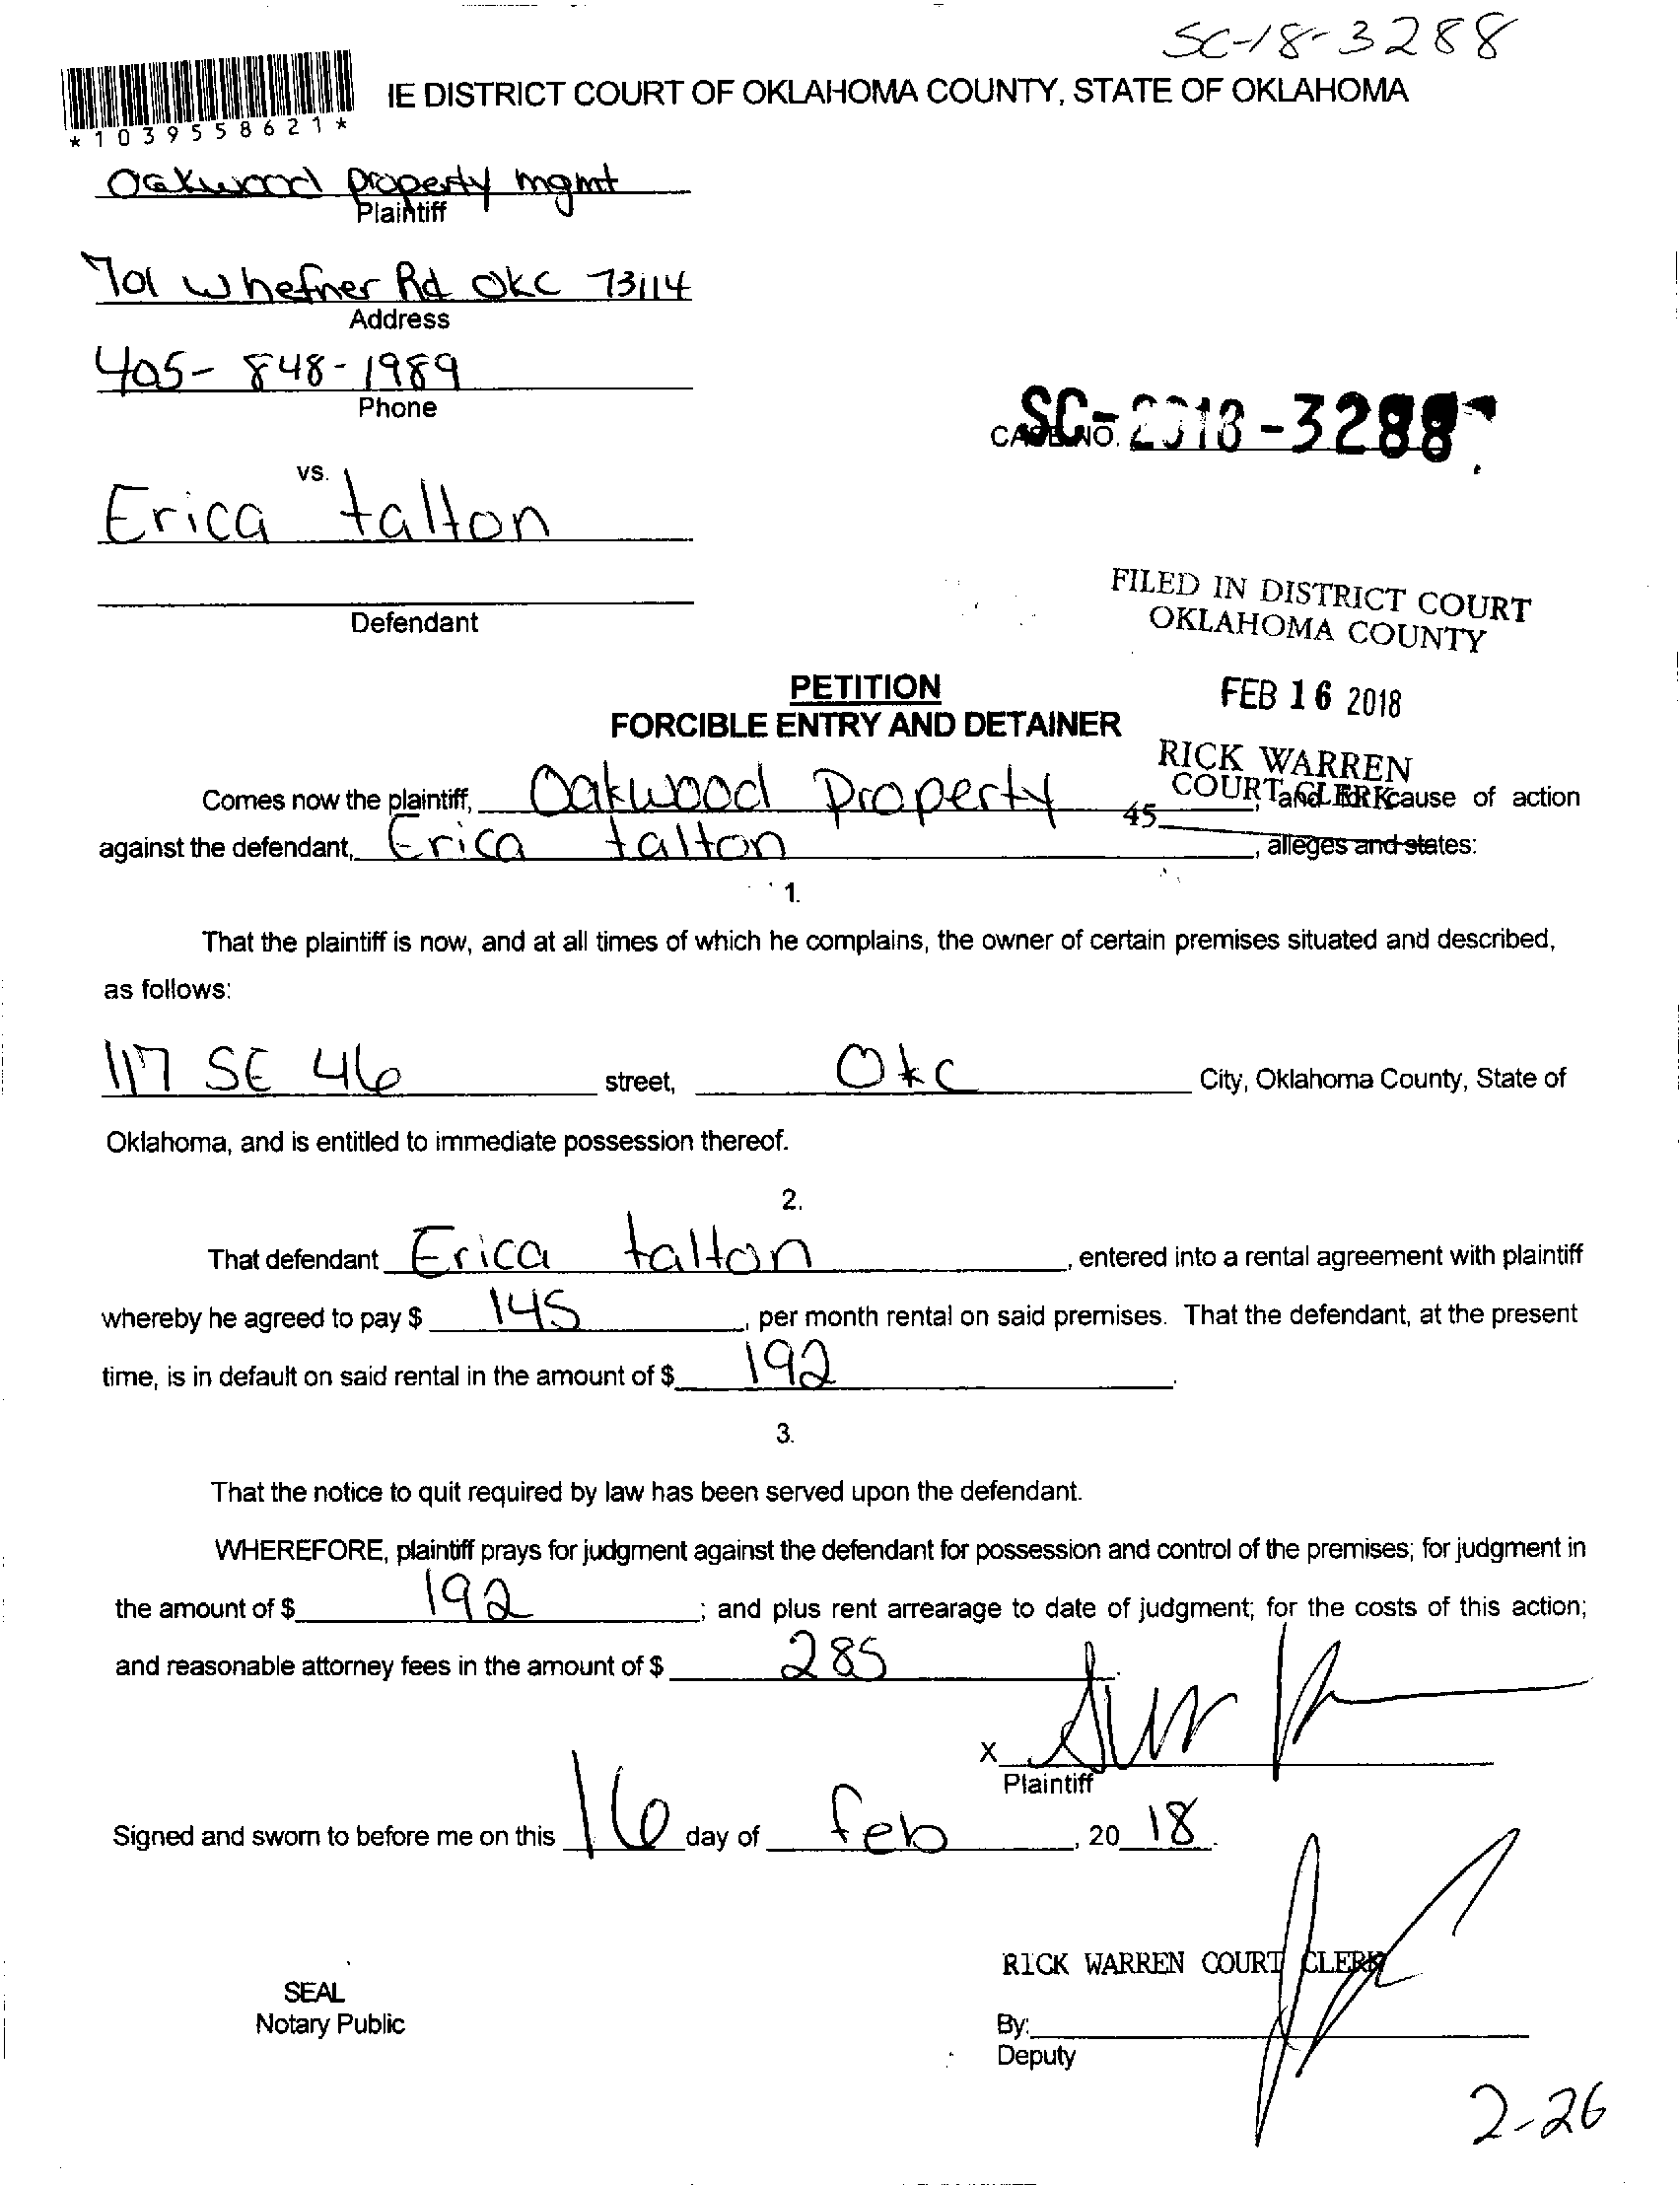 SC-18-3288
IE DISTRICT COURT OF OKLAHOMA COUNTY, STATE OF OKLAHOMA
*1039558621*
Oakwood property mgmt
Plaintiff
701 w hefner Rd OKC 73114
Address
405-848-1989
Phone
CASE NO. SC-2018-3288
vs.
Erica talton
Defendant
FILED IN DISTRICT COURT
OKLAHOMA COUNTY
FEB 16 2018
PETITION
FORCIBLE ENTRY AND DETAINER
RICK WARREN
COURT CLERK
45
Comes now the plaintiff, Oakwood Property, and for cause of action
against the defendant, Erica talton, alleges and states:
1.
That the plaintiff is now, and at all times of which he complains, the owner of certain premises situated and described,
as follows:
117 SE 46 street, OKC City, Oklahoma County, State of
Oklahoma, and is entitled to immediate possession thereof.
2.
That defendant Erica talton, entered into a rental agreement with plaintiff
whereby he agreed to pay $ 145, per month rental on said premises. That the defendant, at the present
time, is in default on said rental in the amount of $ 192.
3.
That the notice to quit required by law has been served upon the defendant.
WHEREFORE, plaintiff prays for judgment against the defendant for possession and control of the premises; for judgment in
the amount of $ 192; and plus rent arrearage to date of judgment; for the costs of this action;
and reasonable attorney fees in the amount of $ 285
X
Plaintiff
Signed and sworn to before me on this 16 day of feb, 20 18.
RICK WARREN COURT CLERK
SEAL
Notary Public
By:
Deputy
2-26